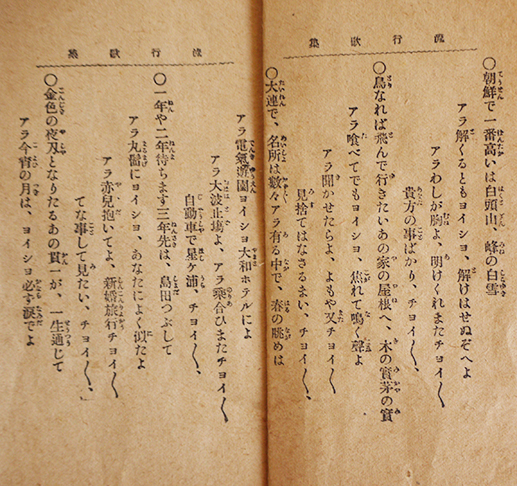 流行歌集
〇朝鮮で一番高いは白頭山、峰の白雪
アラ解くるともヨイショ、解けはせぬぞへよ
アラわしが胸よ、明けくれまたチョイ〱、
貴方の事ばかり、チョイ〱、
〇鳥なれば飛んで行きたいあの家の屋根へ、木の實茅の實
アラ喰べてでもヨイショ、焦れて鳴く聲よ
アラ聞かせたらよ、よもや又チョイ〱
見捨てはなさるまい、チョイ〱、
〇大連で、名所は數々アラ有る中で、春の眺めは
流行歌集
アラ電氣遊園ヨイショ大和ホテルによ
アラ大波止塲よ、アラ乘合ひまたチョイ〱
自動車で星ケ浦、チョイ〱、
〇一年や二年待ちます三年先は、島田つぶして
アラ丸髷にヨイショ、あなたによく似たよ
アラ赤兒抱いてよ、新婚旅行チョイ〱
てな事して見たい、チョイ〱、
〇金色の夜刄となりたるあの貫一が、一生通じて
アラ今宵の月は、ヨイショ必ず涙でよ